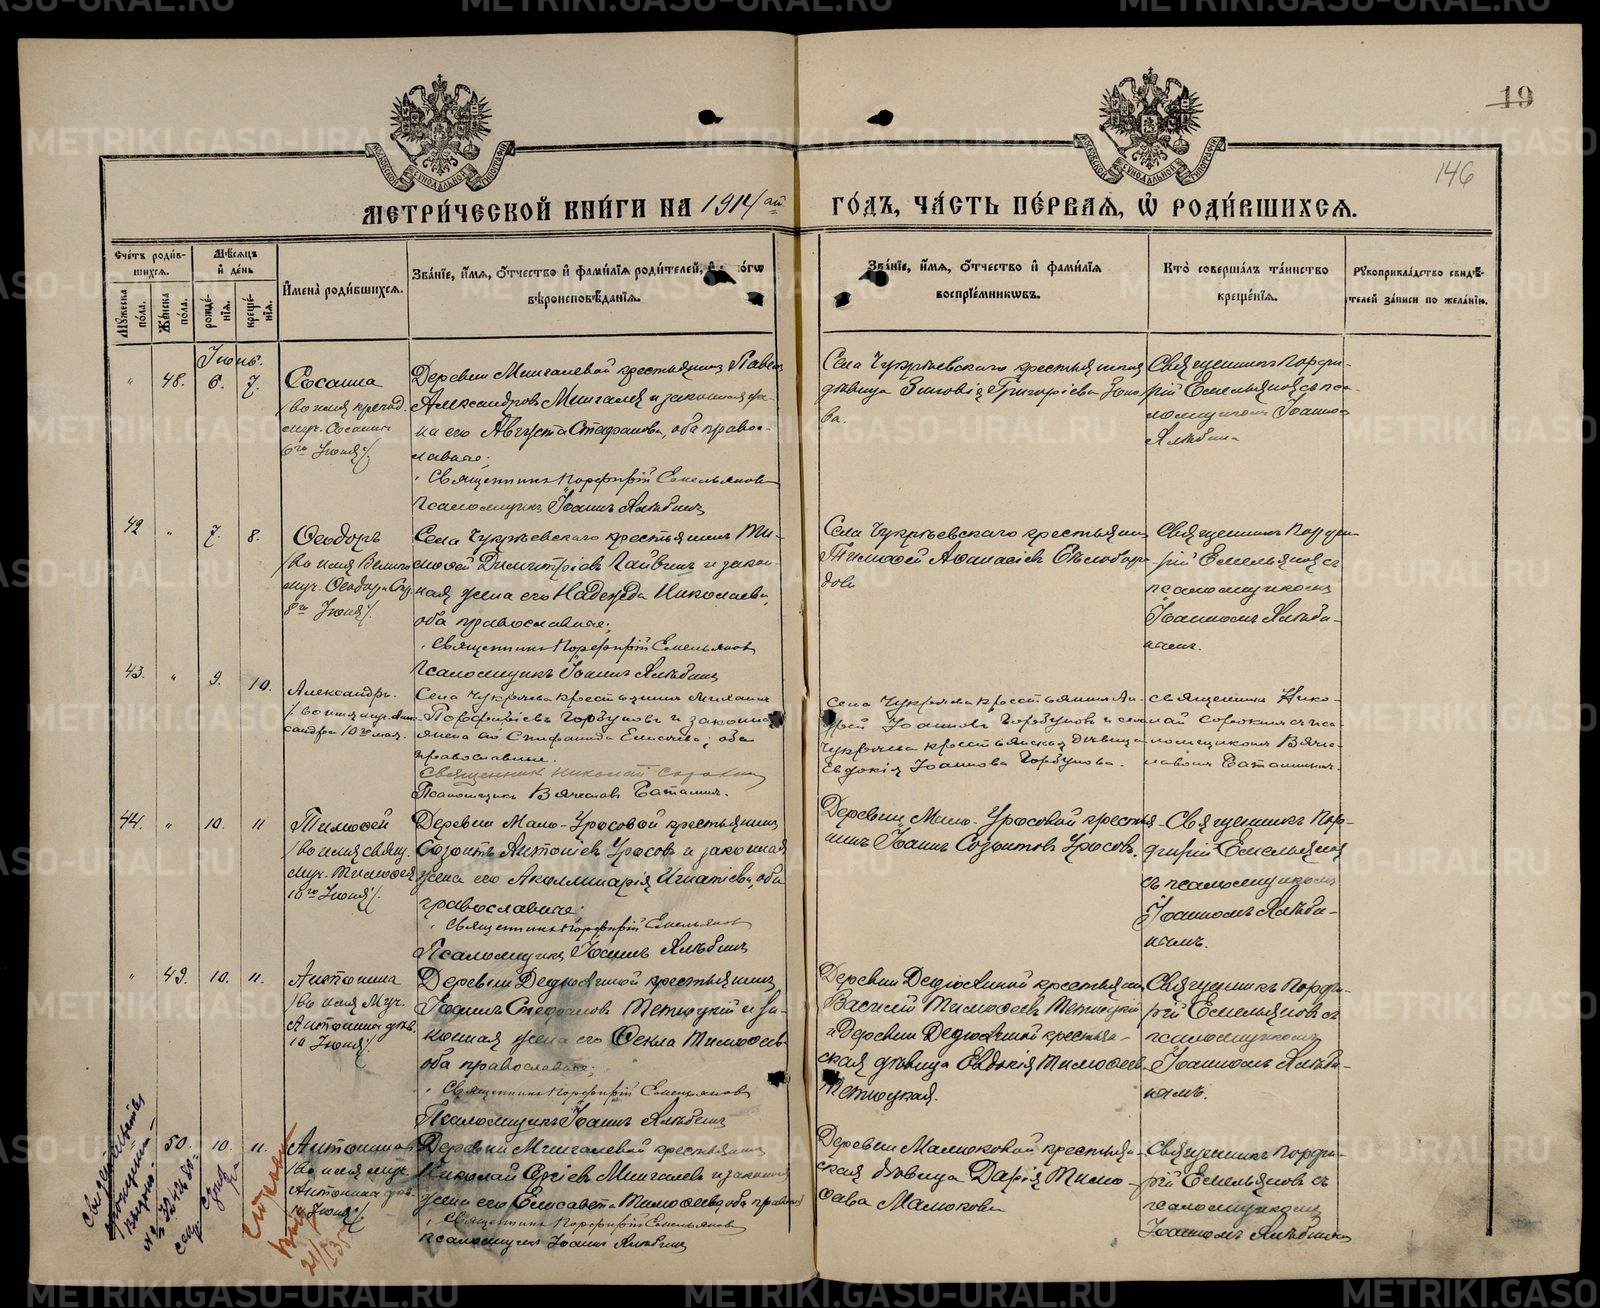 19
146
МЕТРИ́ЧЕСКОЙ КНИ́ГИ НА 1914 ый
ГО́ДЪ, ЧА́СТЬ ПЕ́РВАЯ, Ѡ҆ РОДИ́ВШИХСЯ.
Сче́тъ роди́в-
шихся.
Му́жеска
по́ла.
Же́нска
по́ла.
Мѣ́сяцъ
и҆ де́нь
рожде́-
нїя.
креще́-
нїя.
И҆мена̀ роди́вшихся.
Зва́нїе, и҆́мя, ѻ҆́тчество и҆ фами́лїя роди́телей,
вѣроисповѣ́данїя.
Зва́нїе, и҆́мя, ѻ҆́тчество и҆ фами́лїя
воспрїе́мникѡвъ.
Кто̀ соверша́лъ та́инство
креще́нїя.
Рукоприкла́дство свидѣ́-
телей за́писи по жела́нїю.
Іюнь.
" 48. 6. 7.
Сосанна
6го Іюня/.
Деревни Мингалевой крестьянинъ Павелъ
Александровъ Мингалевъ и законная же-
на его Августа Стефанова, оба право-
славные;
Священникъ Порфирій Емельяновъ
Псаломщикъ Іоаннъ Алябинъ
Села Чукрѣевскаго крестьянская
дѣвица Зиновія Григоріева
ва.
Священникъ Порфи-
рій Емельяновъ съ пса-
ломщикомъ Іоанно
42 " 7. 8.
Ѳеодоръ
/во имя Велико
муч. Ѳеодора
8го Іюня/.
Села Чукрѣевскаго крестьянинъ Ти-
моѳей Димитріевъ и закон-
ная жена его Надежда Николаева,
оба православные;
Священникъ Порфирій Емельяновъ
Псаломщикъ Іоаннъ Алябинъ
Села Чукрѣевскаго крестьянин
Тимоѳей Аѳанасіевъ Бѣлобор
довъ
Священникъ Порфи
рій Емельяновъ съ
псаломщикомъ
Іоанномъ Аляби-
нымъ.
43. " 9. 10.
Александръ.
/во имя муч. Алек-
сандра 10го мая.
Села Чукрѣева крестьянинъ Михаилъ
Порфиріевъ Горбуновъ и законная
жена его Епифанида Елисеева; оба
православные.
Священникъ Николай Сорокинъ
Псаломщикъ Вячеславъ Баталинъ.
Села Чукрѣева крестьянинъ Ан-
дрей Іоанновъ Горбуновъ и села
Чукрѣева крестьянская дѣвица
Евдокія Іоаннова Горбунова.
Священникъ Нико-
лай Сорокинъ съ пса-
ломщикомъ Вяче-
славомъ Баталинымъ.
44. " 10. 11
Тимоѳей
/во имя свящ.
муч. Тимоѳея
10го Іюня/.
Деревни Мало-Уросовой крестьянинъ
Созонтъ Антоніевъ Уросовъ и законная
жена его Аполлинарія Игнатіева, оба
православные;
Священникъ Порфирій Емельяновъ
Псаломщикъ Іоаннъ Алябинъ
Деревни Мало-Уросовой крестья-
нинъ Іоаннъ Созонтовъ Уросовъ.
Священникъ Пор-
фирій Емельяновъ
съ псаломщикомъ
Іоанномъ Аляби-
нымъ.
" 49. 10. 11.
Антонина
/во имя Муч.
Антонины дѣв.
10 Іюня/.
Деревни Дедюхиной крестьянинъ
Іоаннъ Стефановъ Тетюцкій и за-
конная жена его Ѳекла Тимоѳеева
оба православные;
Священникъ Порфирій Емельяновъ
Псаломщикъ Іоаннъ Алябинъ
Деревни Дедюхиной крестьянин
Василій Тимоѳеевъ Тетюцкій
и Деревни Дедюхиной крестьян-
ская дѣвица Евдокія Тимоѳеев
Тетюцкая.
Священникъ Порфи-
рій Емельяновъ съ
псаломщикомъ
Іоанномъ Аляби-
нымъ.
50. 10. 11.
Антонина
/во имя муч.
Антонины дѣв.
10 Іюня/.
Деревни Мингалевой крестьянинъ
Николай Сергіевъ Мингалевъ и законная
жена его Елисавета Тимоѳеева, оба правосл
Священникъ Порфирій Емельяновъ
Псаломщикъ Іоаннъ Алябинъ
Деревни Малюковой крестьян-
ская дѣвица Дарія Тимо-
ѳеева Малюкова
Священникъ Порфи-
рій Емельяновъ съ
псаломщикомъ
Іоанномъ Алябинымъ
METRIKI.GASO-URAL.RU